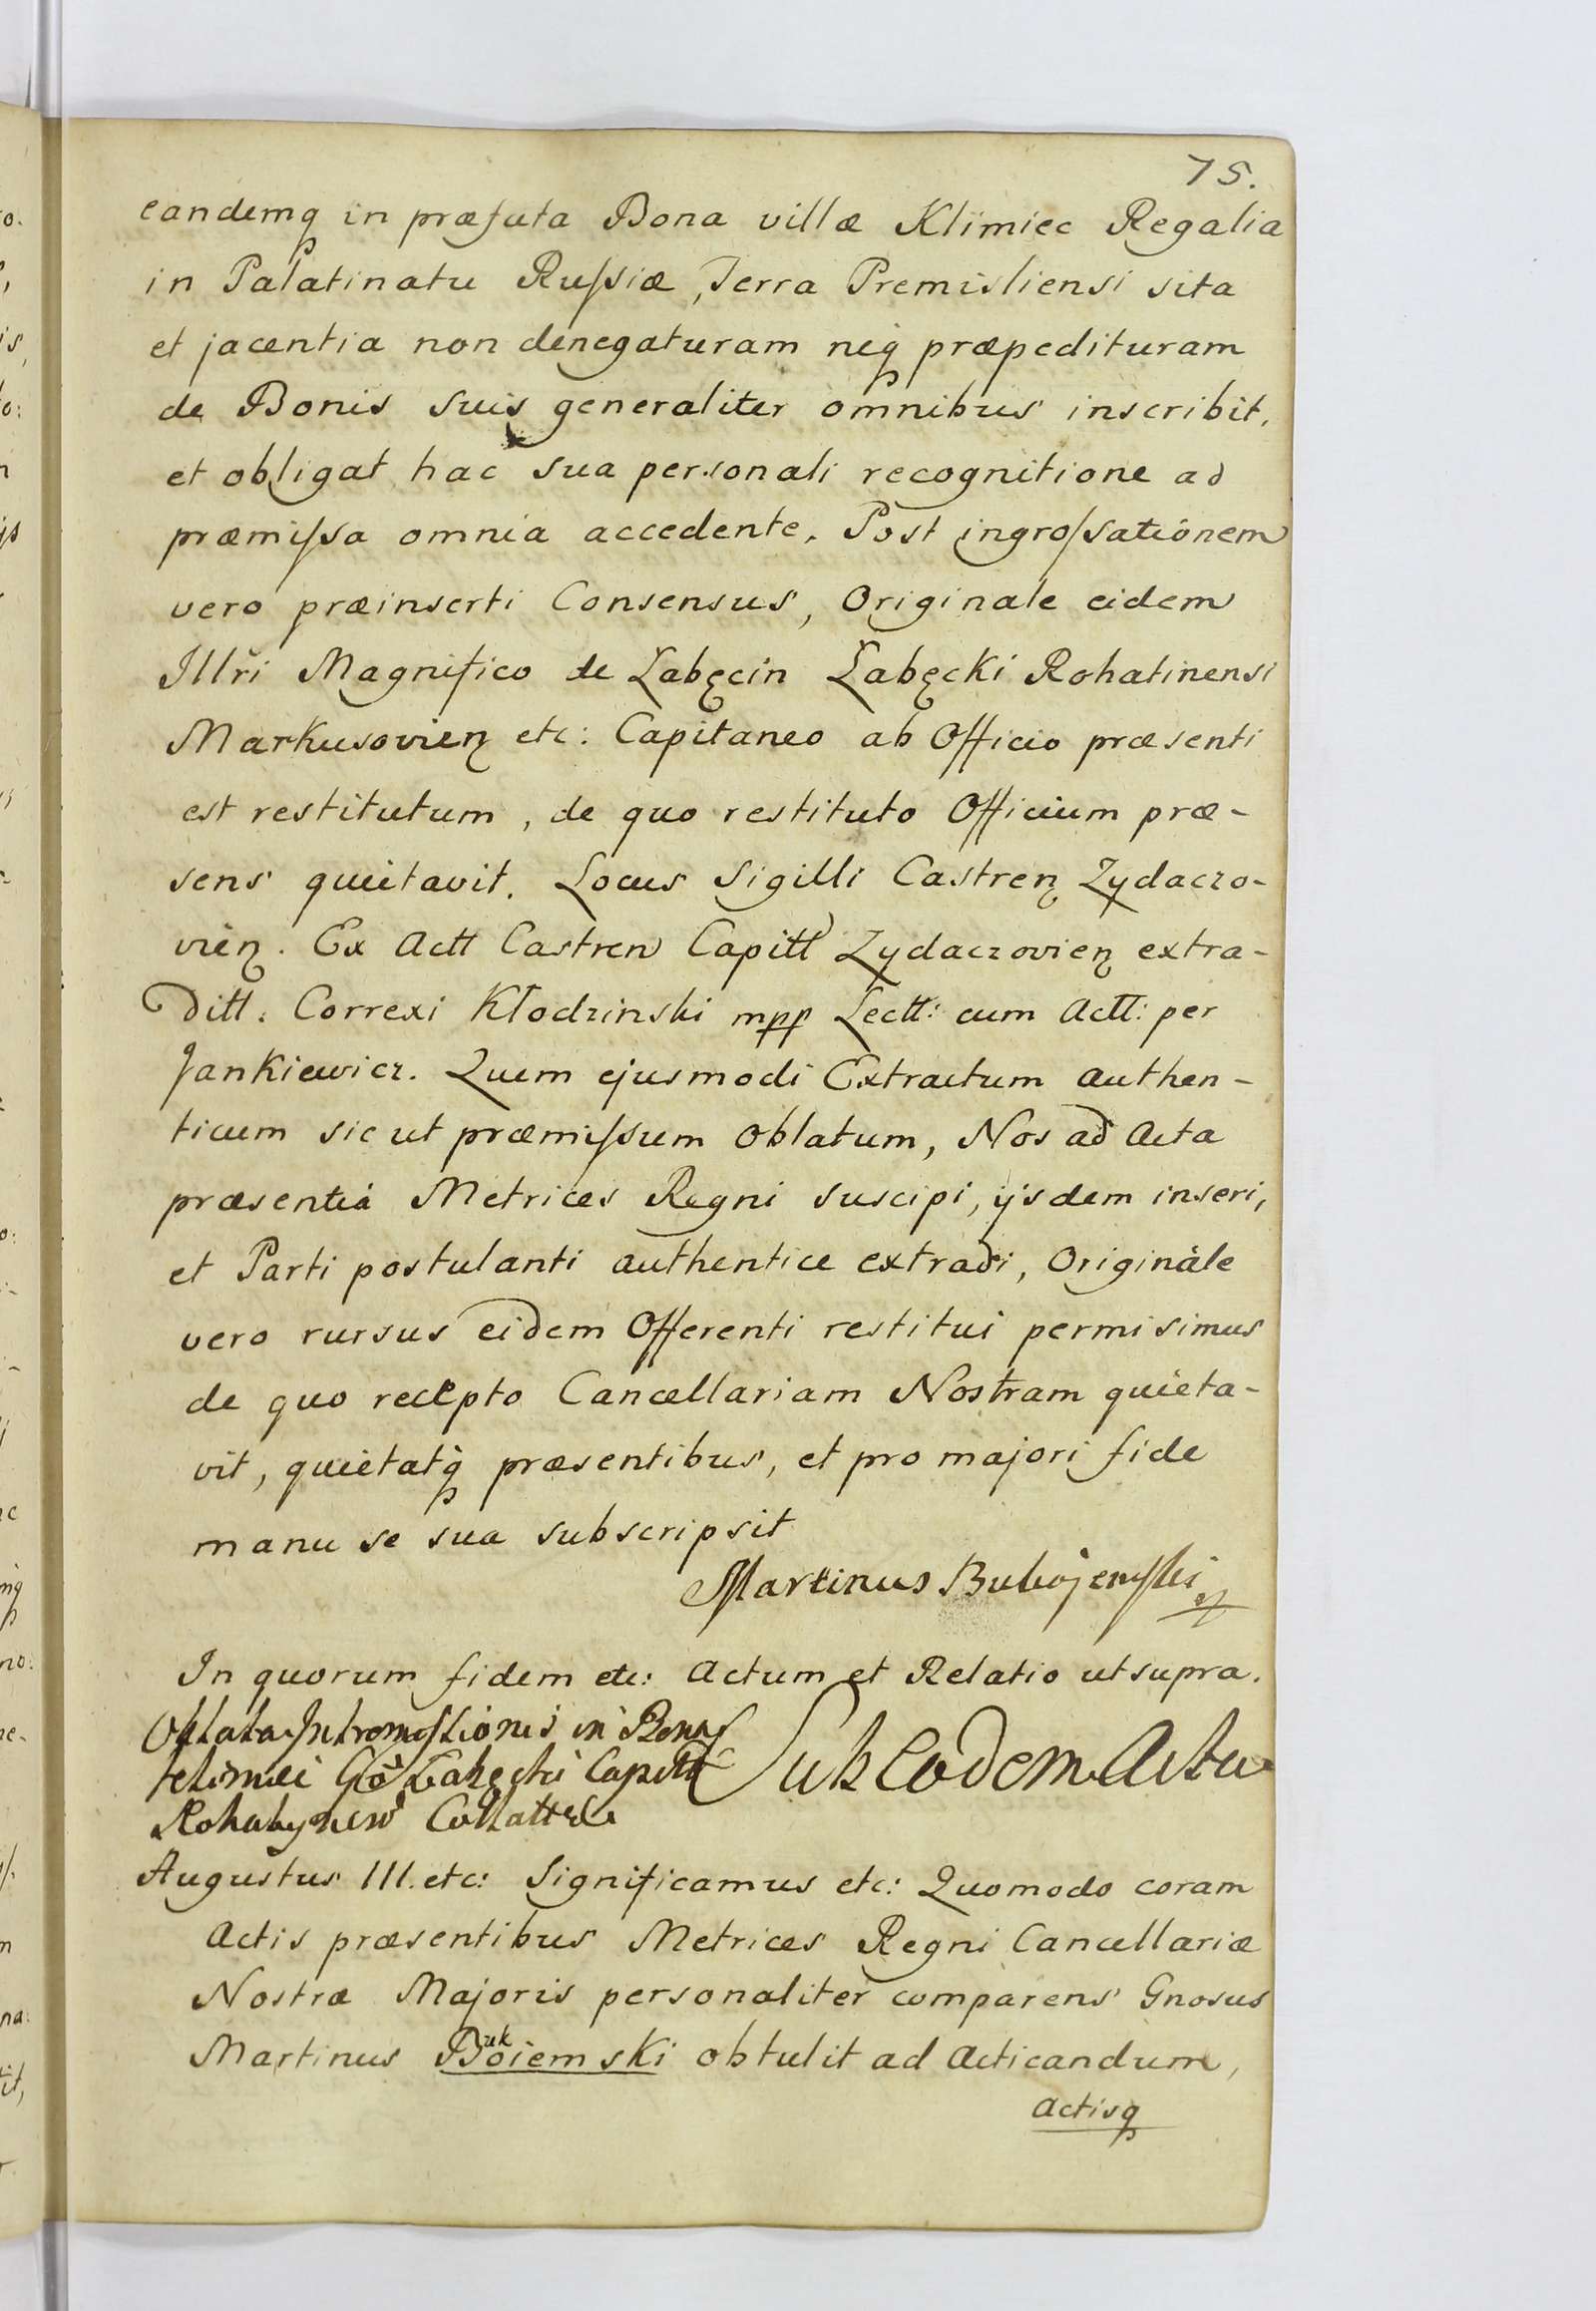 75.
eandemq in præfata Bona villæ Klimiec Regalia
in Palatinatu Russiæ, Terra Premisliensi sita
et jacentia non denegaturam neq præpedituram
de Bonis suis generaliter omnibus inscribit,
et obligat hac sua personali recognitione ad
præmissa omnia accedente. Post ingrossationem
vero præinserti Consensus, Originale eidem
Illri Magnifico de Łabęcin Łabęcki Rohatinensi
Markusovien etc: Capitaneo ab Officio præsenti
est restitutum, de quo restituto Officium præ-
sens quietavit. Locus Sigilli Castren Zydaczo-
vien. Ex Actt Castren Capitt Zydaczovien extra-
ditt. Correxi Kłodzinski mpp Lectt: cum Actt: per
Jankiewicz. Quem ejusmodi Extractum authen-
ticum sic ut præmissum oblatum, Nos ad Acta
præsentia Metrices Regni suscipi, ijsdem inseri,
et Parti postulanti authentice extradi, Originale
vero rursus eidem Offerenti restitui permisimus
de quo recepto Cancellariam Nostram quieta-
vit, quietatq præsentibus, et pro majori fide
manu se sua subscripsit
Martinus
In quorum fidem etc: Actum et Relatio ut supra.
Oblata Intromissionis in Bona
Sub Eodem Actu
Klimiec Łabęcki Capitt
Augustus III. etc: Significamus etc: Quomodo coram
Actis præsentibus Metrices Regni Cancellariæ
Nostræ Majoris personaliter comparens Gnosus
Martinus Bukoiemski obtulit ad Acticandum,
Actisq